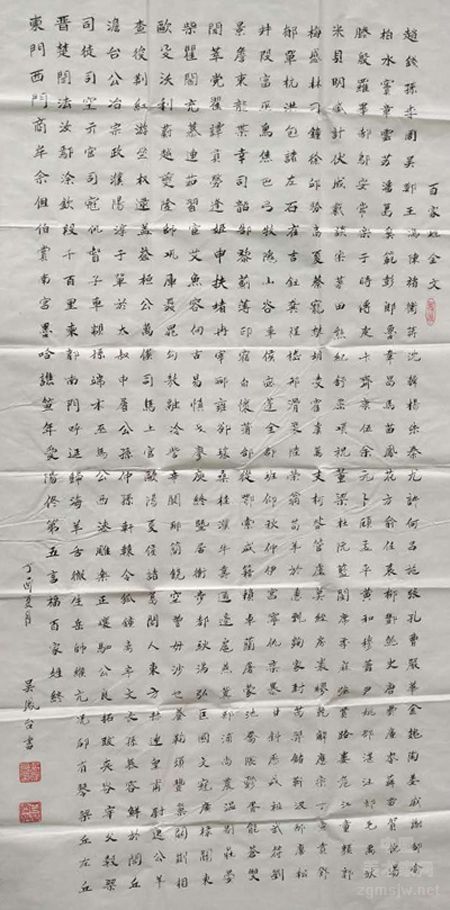 百家姓全文
趙錢孫李周吳鄭王馮陳褚衛蔣沈韓楊朱秦尤許何呂施張孔曹嚴華金魏陶姜戚謝鄒喻
柏水竇章雲蘇潘葛奚範彭郎魯韋昌馬苗鳳花方俞任袁柳酆鮑史唐費廉岑薛雷賀倪湯
滕殷羅畢郝鄔安常樂于時傅皮卞齊康伍余元卜顧孟平黃和穆蕭尹姚邵湛汪祁毛禹狄
米貝明臧計伏成戴談宋茅龐熊紀舒屈項祝董梁杜阮藍閔席季麻強賈路婁危江童顏郭
梅盛林刁鐘徐邱駱高夏蔡田樊胡凌霍虞萬支柯昝管盧莫經房裘繆干解應宗丁宣賁鄧
郁單杭洪包諸左石崔吉鈕龔程嵇邢滑裴陸榮翁荀羊於惠甄曲家封芮羿儲靳汲邴糜松
井段富巫烏焦巴弓牧隗山谷車侯宓蓬全郗班仰秋仲伊宮寧仇欒暴甘鈄厲戎祖武符劉
景詹束龍葉幸司韶郜黎薊薄印宿白懷蒲邰從鄂索咸籍賴卓藺屠蒙池喬陰鬱胥能蒼雙
聞莘黨翟譚貢勞逄姬申扶堵冉宰酈雍郤璩桑桂濮牛壽通邊扈燕冀郟浦尚農溫別莊晏
柴瞿閻充慕連茹習宦艾魚容向古易慎戈廖庾終暨居衡步都耿滿弘匡國文寇廣祿闕東
歐殳沃利蔚越夔隆師鞏厙聶晁勾敖融冷訾辛闞那簡饒空曾毋沙乜養鞠須豐巢關蒯相
查後荊紅游竺權逯蓋益桓公萬俟司馬上官歐陽夏侯諸葛聞人東方赫連皇甫尉遲公羊
澹台公冶宗政濮陽淳于單于太叔申屠公孫仲孫軒轅令狐鍾離宇文長孫慕容鮮于閭丘
司徒司空亓官司寇仉督子車顓孫端木巫馬公西漆雕樂正壤駟公良拓跋夾谷宰父穀梁
晉楚閆法汝鄢涂欽段干百里東郭南門呼延歸海羊舌微生岳帥緱亢況郈有琴梁丘左丘
東門西門商牟佘佴伯賞南宮墨哈譙笪年愛陽佟第五言福百家姓終
丁酉夏月
吳鳳台書
zgmsjw.net